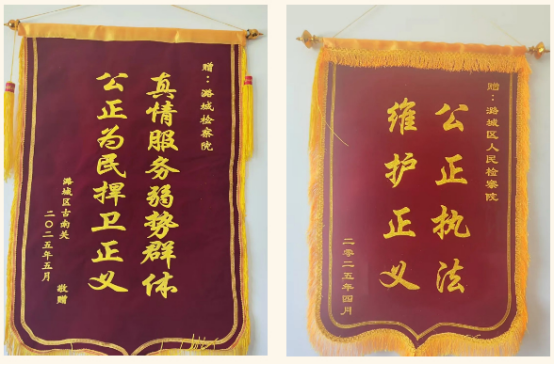 赠：潞城检察院
真情服务弱势群体
公正为民捍卫正义
潞城区古南关
二〇二五年五月
敬赠
赠：潞城区人民检察院
公正执法
维护正义
二零二五年四月